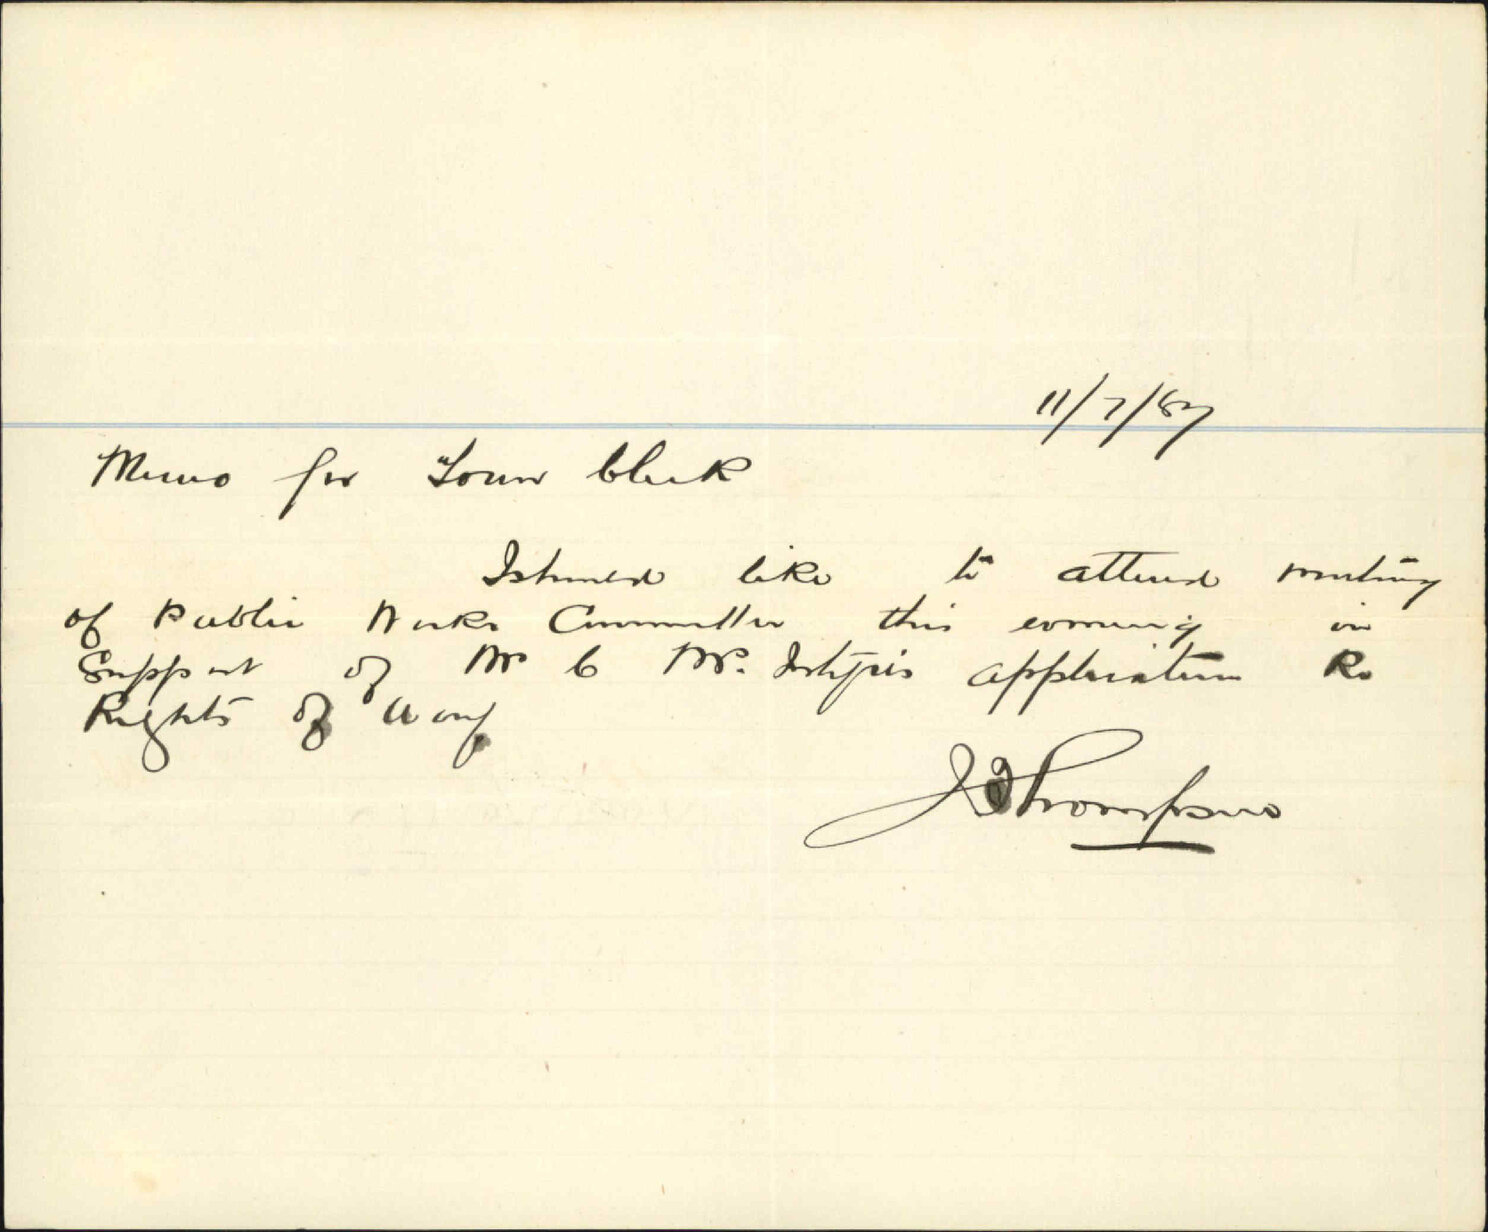 11/7/87
Memo for Town Clerk
I should like to attend meeting
of Public Works Committee this evening in
Support of Mr C application Re
Rights of Way
J Thompson